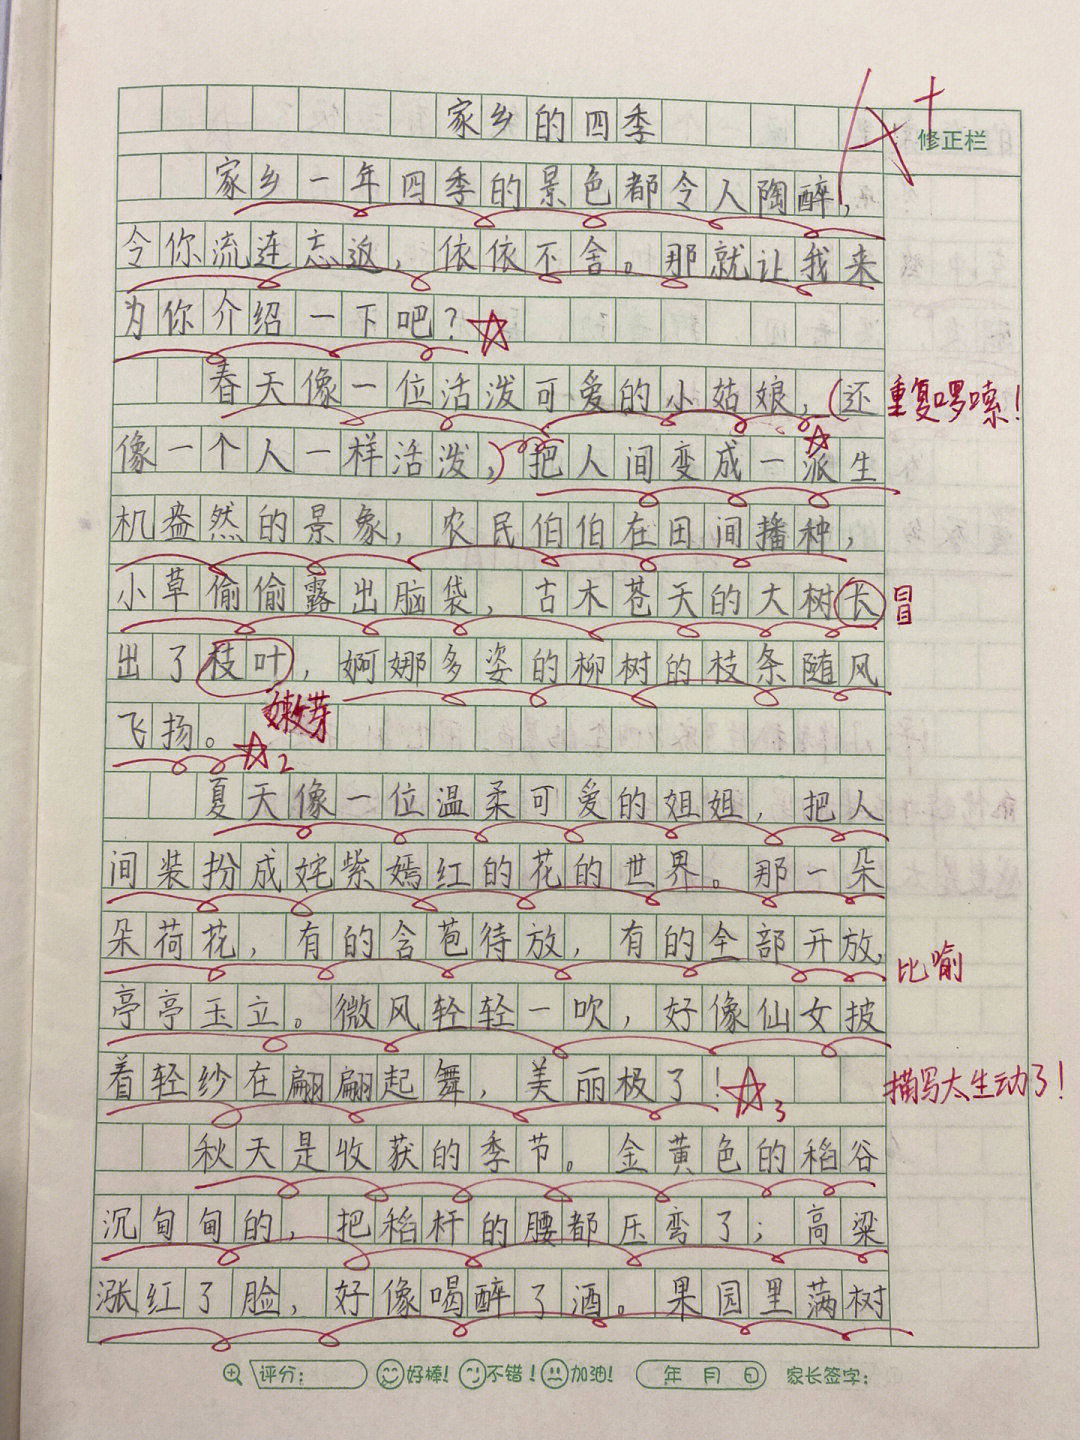 A+
家乡的四季
修正栏
家乡一年四季的景色都令人陶醉，
令你流连忘返，依依不舍。那就让我来
为你介绍一下吧？
春天像一位活泼可爱的小姑娘，(还
重复啰嗦！
像一个人一样活泼，)把人间变成一派生
机盎然的景象，农民伯伯在田间播种，
小草偷偷露出脑袋，古木苍天的大树长
冒
出了枝叶，婀娜多姿的柳树的枝条随风
嫩芽
飞扬。
2
夏天像一位温柔可爱的姐姐，把人
间装扮成姹紫嫣红的花的世界。那一朵
朵荷花，有的含苞待放，有的全部开放，
比喻
亭亭玉立。微风轻轻一吹，好像仙女披
着轻纱在翩翩起舞，美丽极了！
3
描写太生动了！
秋天是收获的季节。金黄色的稻谷
沉甸甸的，把稻杆的腰都压弯了；高粱
涨红了脸，好像喝醉了酒。果园里满树
评分： 好棒！ 不错！ 加油！ 年 月 日 家长签字：